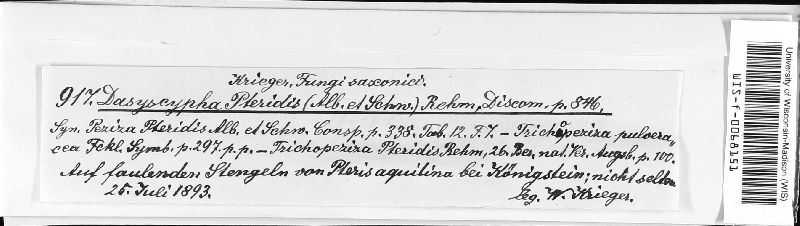 Krieger, Fungi saxonici.
917. Dasyscypha Pteridis (Alb. et Schw.) Rehm, Discom. p. 846.
Syn. Peziza Pteridis Alb. et Schw. Consp. p. 338. Tab. 12. F. 7. — Trichopeziza pulvera„
cea Fckl. Symb. p. 297. p. p. — Trichopeziza Pteridis Rehm, 26. Ber. nat. Ver. Augsb. p. 100.
Auf faulenden Stengeln von Pteris aquilina bei Königstein; nicht selten
25. Juli 1893. leg. W. Krieger.
University of Wisconsin-Madison (WIS)
WIS-f-0068151